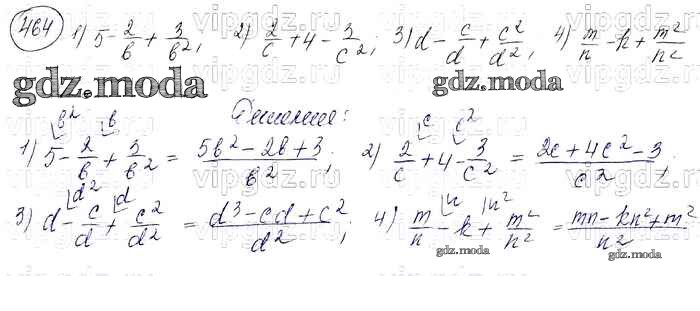 464 1) 5 - 2/b + 3/b²; 2) 2/c + 4 - 3/c²; 3) d - c/d + c²/d²; 4) m/n - k + m²/n²
gdz.moda gdz.moda
Решение:
1) 5 - 2/b + 3/b² = (5b² - 2b + 3)/b²; 2) 2/c + 4 - 3/c² = (2c + 4c² - 3)/c²;
3) d - c/d + c²/d² = (d³ - cd + c²)/d²; 4) m/n - k + m²/n² = (mn - kn² + m²)/n²
gdz.moda gdz.moda